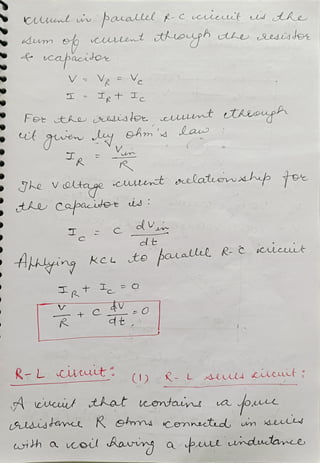 current in parallel R-C circuit is the
sum of current through the resistor
& capacitor
V = VR = Vc
I = IR + Ic
For the resistor, current through
it given by ohm's law:
IR = Vin/R
The voltage current relationship for
the capacitor is:
Ic = C dVin/dt
Applying KCL to parallel R-C circuit
IR + Ic = 0
V/R + C dV/dt = 0
R-L circuit: (1) R-L series circuit:
A circuit that contains a pure
resistance R ohms connected in series
with a coil having a pure inductance